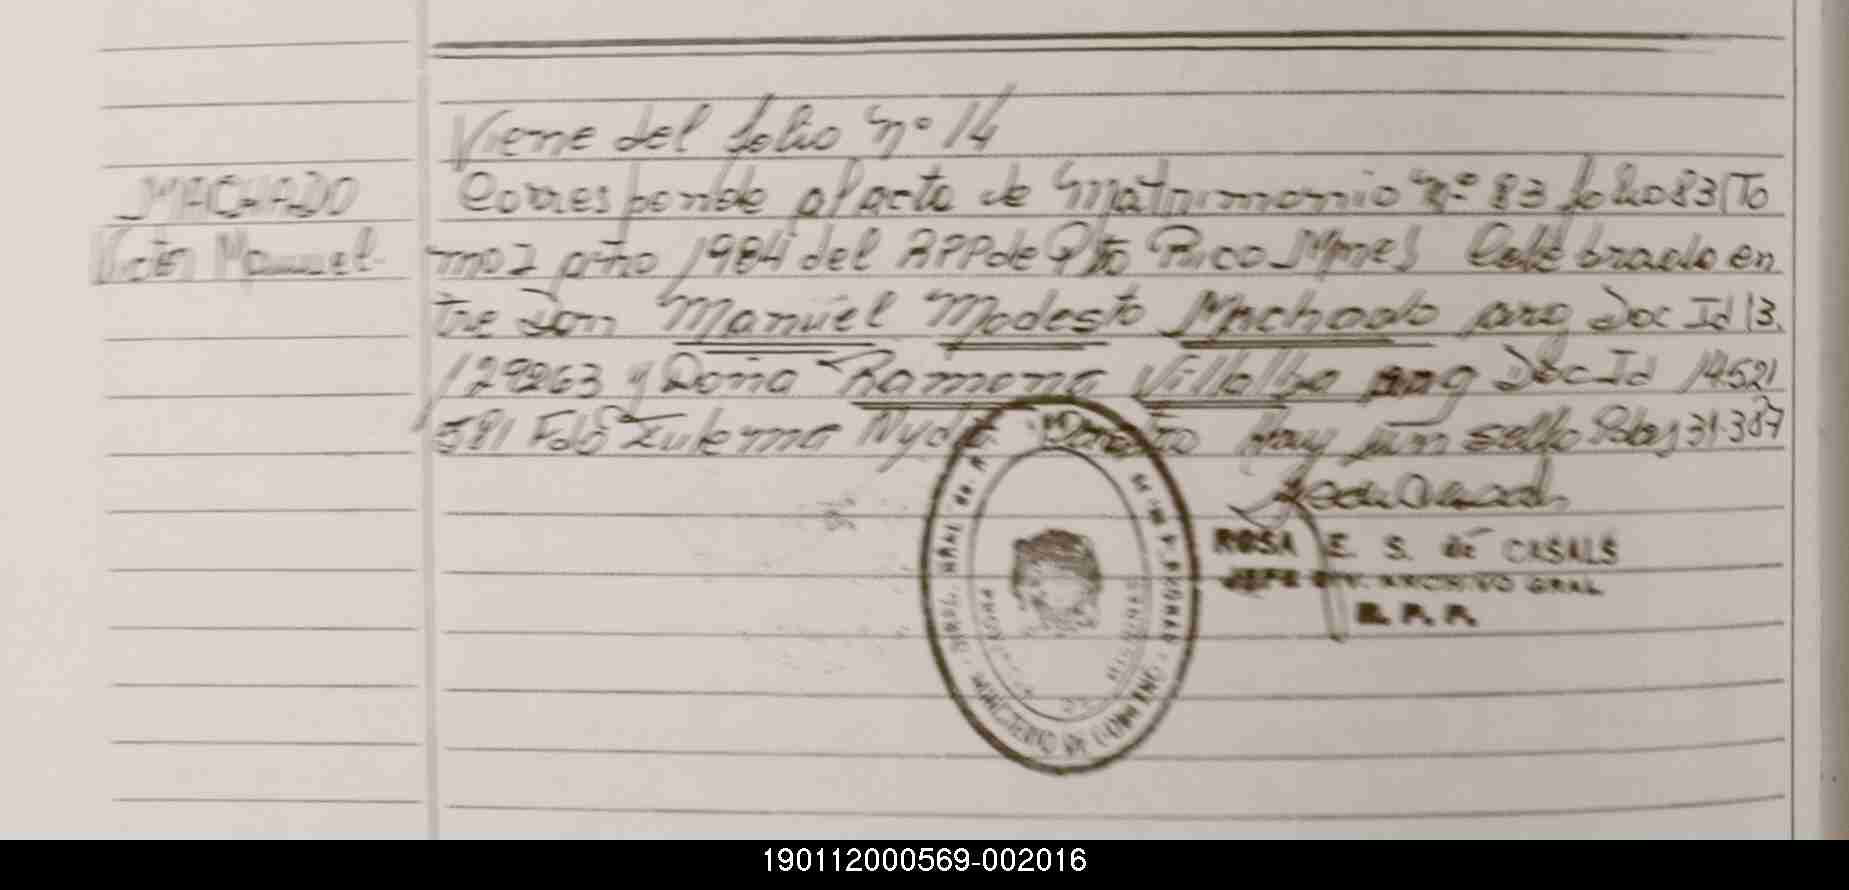 Viene del folio Nº 14
MACHADO
Victor Manuel
Corresponde al acta de Matrimonio Nº 83 folio 83 To
mo I año 1984 del RPP de Pto Rico Mnes Celebrado en
tre Don Manuel Modesto Machado arg Doc Id 13.
129263 y Doña Ramona Villalba arg Doc Id 14.521
581 Fdo Zulema Hay un sello Pdas 31.387
ROSA E. S. de CASALS
JEFE DIV. ARCHIVO GRAL
R. P. P.
MINISTERIO DE GOBIERNO
PROVINCIA DE MISIONES
190112000569-002016